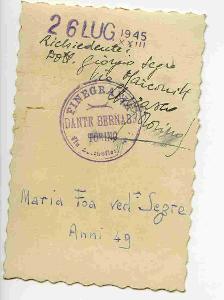 26 LUG 1945
XXIII
Richiedente:
Dott. Giorgio Segre
Via
FINEGRAFIA
DANTE BERNAB
TORINO
Via
Maria Foa ved. Segre
Anni 49